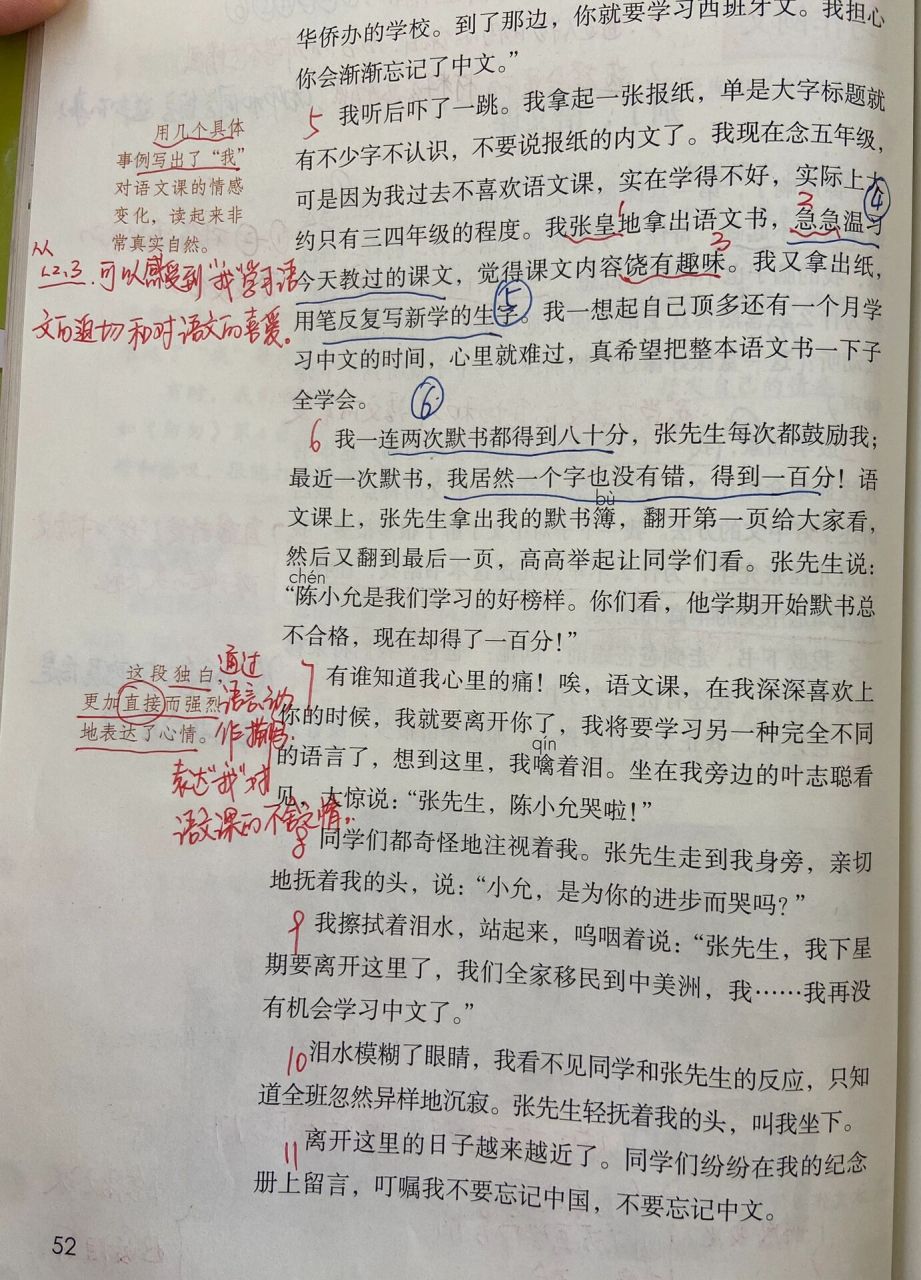 华侨办的学校。到了那边，你就要学习西班牙文。我担心
你会渐渐忘记了中文。”
5 我听后吓了一跳。我拿起一张报纸，单是大字标题就
有不少字不认识，不要说报纸的内文了。我现在念五年级，
可是因为我过去不喜欢语文课，实在学得不好，实际上大
④
约只有三四年级的程度。我张皇地拿出语文书，急急温习
1 2
今天教过的课文，觉得课文内容饶有趣味。我又拿出纸，
3
⑤
用笔反复写新学的生字。我一想起自己顶多还有一个月学
习中文的时间，心里就难过，真希望把整本语文书一下子
全学会。
⑥
6 我一连两次默书都得到八十分，张先生每次都鼓励我；
最近一次默书，我居然一个字也没有错，得到一百分！语
bù
文课上，张先生拿出我的默书簿，翻开第一页给大家看，
然后又翻到最后一页，高高举起让同学们看。张先生说：
chén
“陈小允是我们学习的好榜样。你们看，他学期开始默书总
不合格，现在却得了一百分！”
7 有谁知道我心里的痛！唉，语文课，在我深深喜欢上
你的时候，我就要离开你了，我将要学习另一种完全不同
qín
的语言了，想到这里，我噙着泪。坐在我旁边的叶志聪看
见，大惊说：“张先生，陈小允哭啦！”
8 同学们都奇怪地注视着我。张先生走到我身旁，亲切
地抚着我的头，说：“小允，是为你的进步而哭吗？”
9 我擦拭着泪水，站起来，呜咽着说：“张先生，我下星
期要离开这里了，我们全家移民到中美洲，我……我再没
有机会学习中文了。”
10 泪水模糊了眼睛，我看不见同学和张先生的反应，只知
道全班忽然异样地沉寂。张先生轻抚着我的头，叫我坐下。
11 离开这里的日子越来越近了。同学们纷纷在我的纪念
册上留言，叮嘱我不要忘记中国，不要忘记中文。
用几个具体
事例写出了“我”
对语文课的情感
变化，读起来非
常真实自然。
从
1.2.3.可以感受到“我”学习语
文的迫切和对语文的喜爱。
这段独白，
更加直接而强烈
地表达了心情。
通过
语言、动
作描写，
表达“我”对
语文课的不舍之情。
52